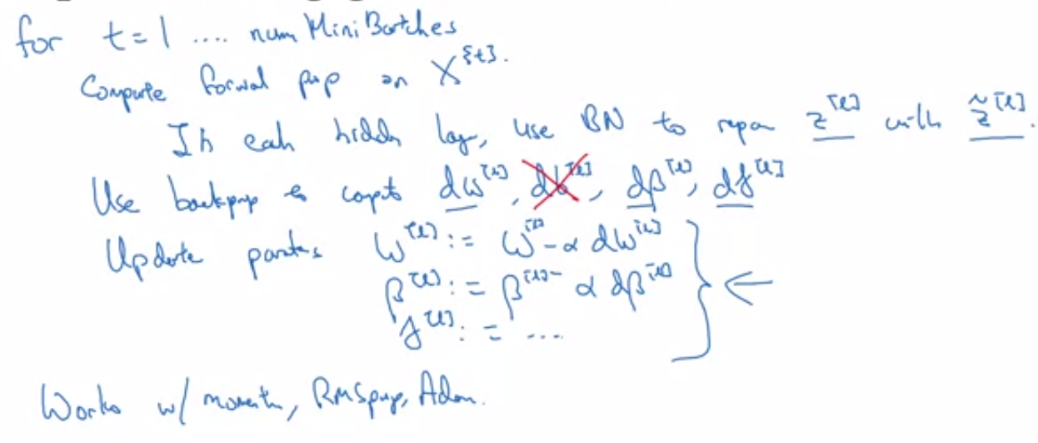 for t = 1 .... num Mini Batches
Compute forward prop on X^{t}.
In each hidden lay, use BN to repar z^[l] with z̃^[l].
Use backprop to compt dw^[l], db^[l], dβ^[l], dγ^[l]
Update parates w^[l] := w^[l] - α dw^[l]
β^[l] := β^[l] - α dβ^[l]
γ^[l] := ...
Works w/ momentu, RMSprop, Adam.